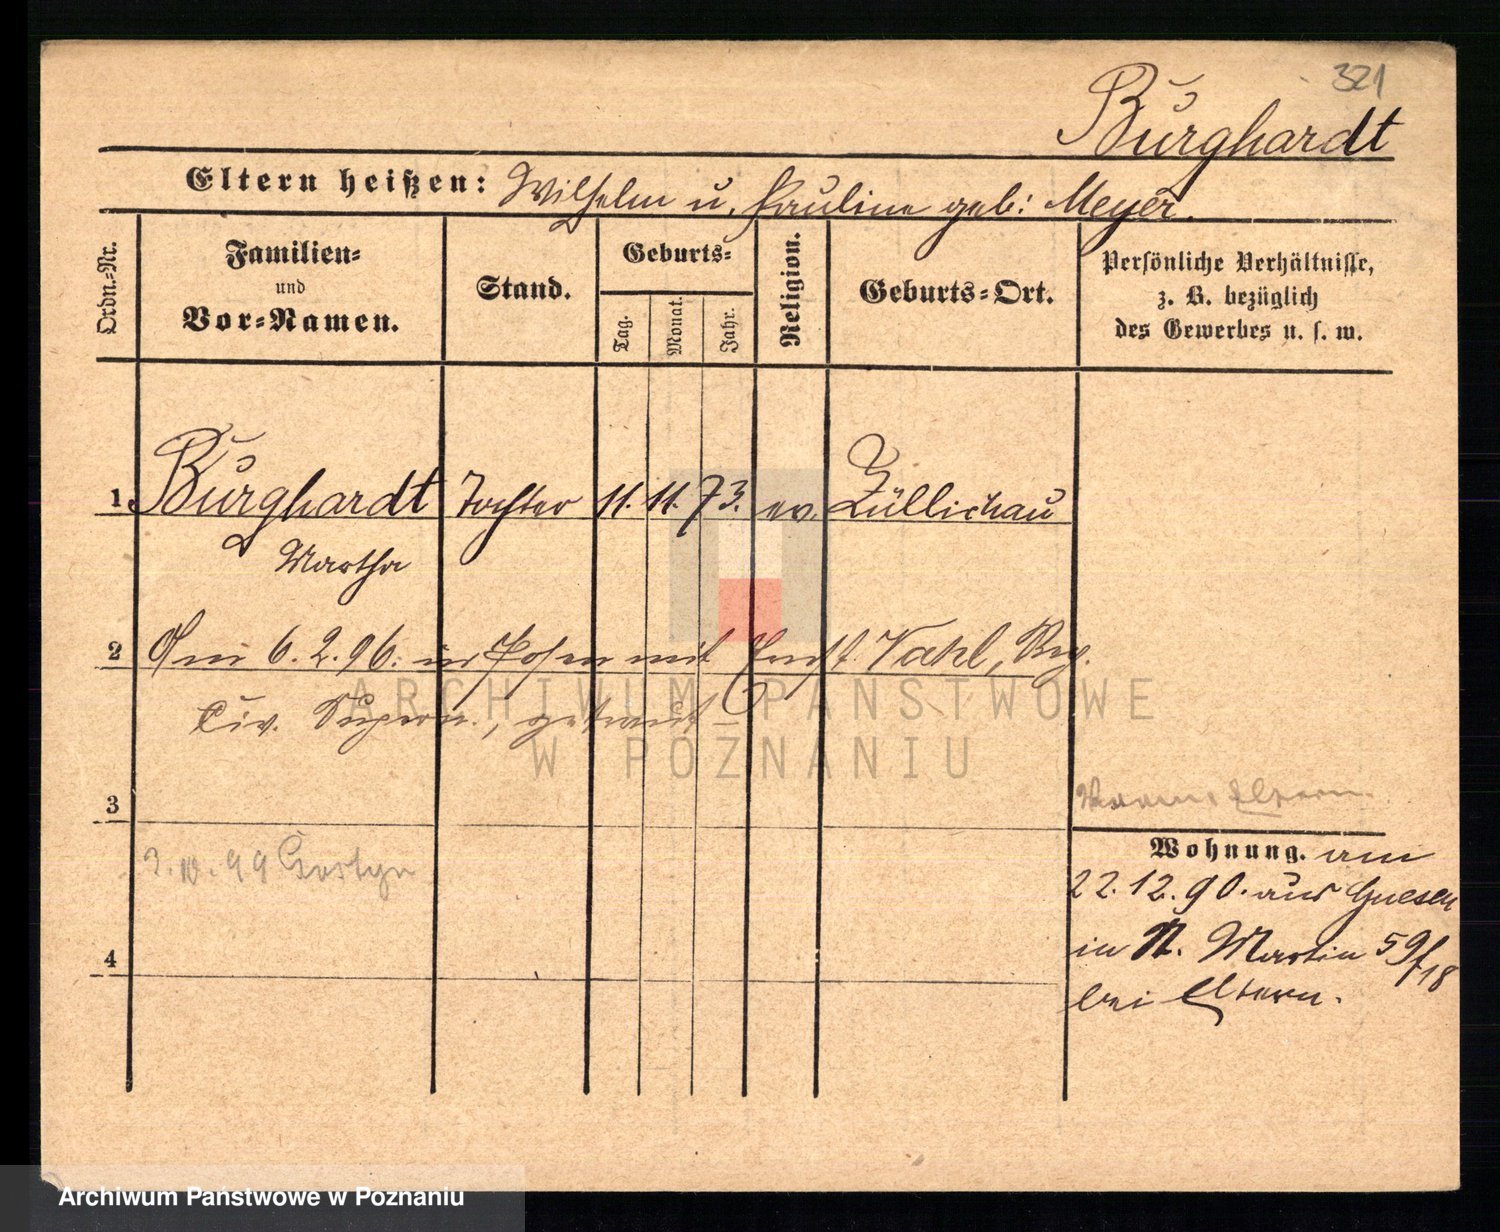 321
Burghardt
Eltern heißen: Wilhelm u. Pauline geb: Meyer.
Ordn.-Nr.
Familien- und Vor-Namen.
Stand.
Geburts-
Tag.
Monat.
Jahr.
Religion.
Geburts-Ort.
Persönliche Verhältnisse,
z. B. bezüglich
des Gewerbes u. s. w.
1 Burghardt Tochter 11. 11. 73. ev. Züllichau
Martha
2 Am 6.2.96. in Posen mit Ernst Vahl, Reg.
Civ. Supern., getraut
3
3.10.99 Gostyn
4
Eltern
Wohnung. am
22.12.90. aus Gnesen
in St. Martin 59/18
bei Eltern.
ARCHIWUM PAŃSTWOWE
W POZNANIU
Archiwum Państwowe w Poznaniu